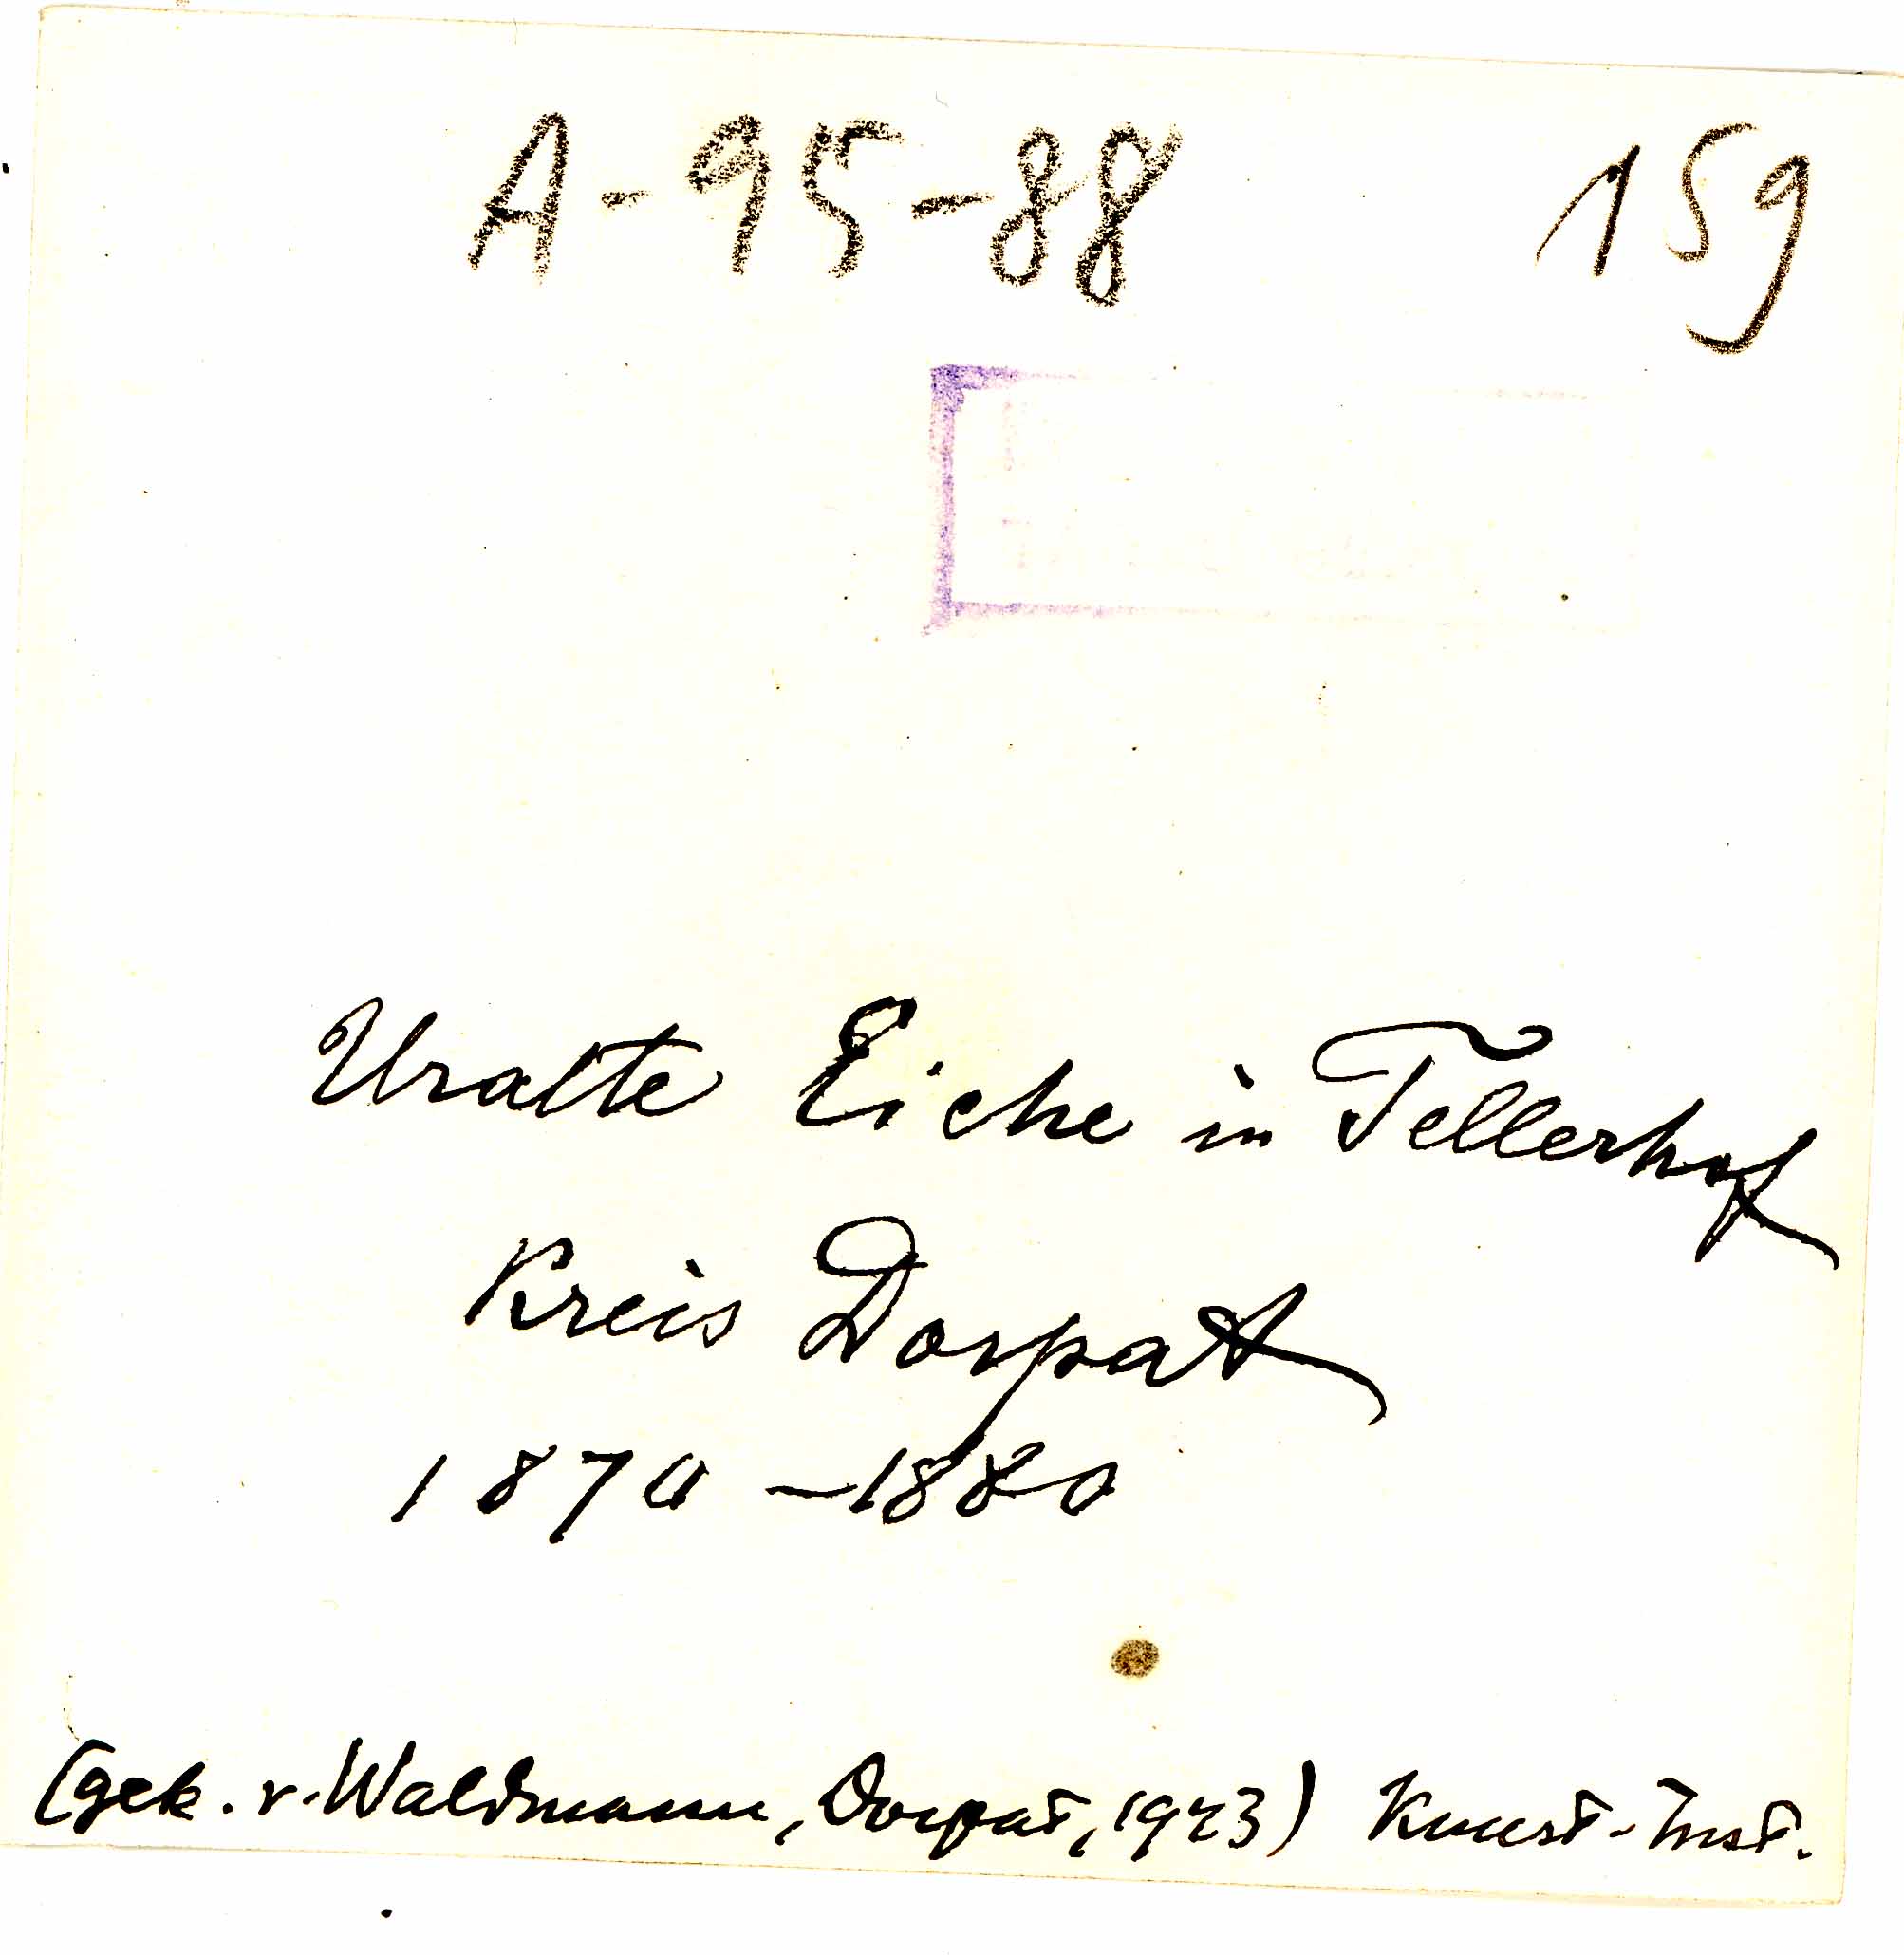 A-95-88 159
Uralte Eiche in Tellerhof
Kreis Dorpat
1870-1880
(gek. v. Waldmann, Dorpat, 1943) Kunst-Inst.